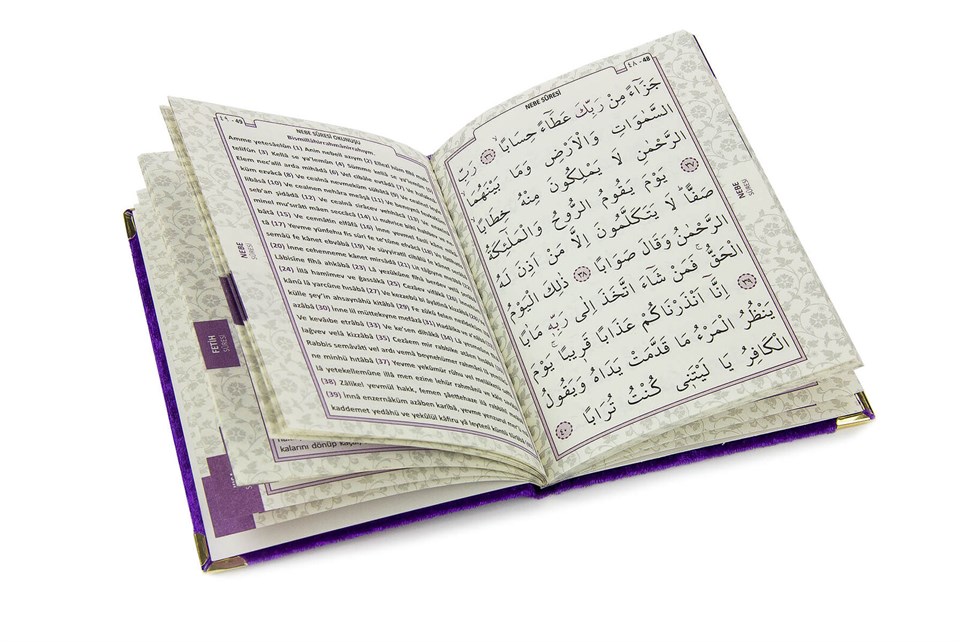 ٤٨ - 48
NEBE SÛRESİ
جَزَٓاءً مِنْ رَبِّكَ عَطَٓاءً حِسَابًاۙ ﴿٣٦﴾ رَبِّ
السَّمٰوَاتِ وَالْاَرْضِ وَمَا بَيْنَهُمَا
الرَّحْمٰنِ لَا يَمْلِكُونَ مِنْهُ خِطَابًاۚ ﴿٣٧﴾
يَوْمَ يَقُومُ الرُّوحُ وَالْمَلٰٓئِكَةُ
صَفًّاۜ لَا يَتَكَلَّمُونَ اِلَّا مَنْ اَذِنَ لَهُ
الرَّحْمٰنُ وَقَالَ صَوَابًا ﴿٣٨﴾ ذٰلِكَ الْيَوْمُ
الْحَقُّۚ فَمَنْ شَٓاءَ اتَّخَذَ اِلٰى رَبِّه۪ مَاٰبًا ﴿٣٩﴾
اِنَّٓا اَنْذَرْنَاكُمْ عَذَابًا قَر۪يبًاۚ يَوْمَ
يَنْظُرُ الْمَرْءُ مَا قَدَّمَتْ يَدَاهُ وَيَقُولُ
الْكَافِرُ يَا لَيْتَن۪ي كُنْتُ تُرَابًا ﴿٤٠﴾
NEBE
SÛRESİ
٤٩ - 49
NEBE SÛRESİ OKUNUŞU
Bismillâhirrahmânirrahıym.
Amme yetesâelûn (1) Anin nebeil azıym (2) Ellezî hüm fîhi
telifûn (3) Kellâ se ya'lemûn (4) Sümme kellâ se ya'lemûn
Elem nec'alil arda mihâdâ (6) Vel cibâle evtâdâ (7) Ve
küm ezvâcâ (8) Ve cealnâ nevmeküm sübâtâ (9) Ve
libâsâ (10) Ve cealnen nehâra meâşâ (11) Ve beneynâ
seb'an şidâdâ (12) Ve cealnâ sirâcev vehhâcâ (13) Ve
minel mu'sırâti mâen seccâcâ (14) Li nuhrice bihî habbev
bâtâ (15) Ve cennâtin elfâfâ (16) İnne yevmel fasli kâne
tâ (17) Yevme yünfehu fis sûri fe te'tûne efvâcâ (18) Ve
semâü fe kânet ebvâbâ (19) Ve süyyirati cibâlü fe kânet
(20) İnne cehenneme kânet mirsâdâ (21) Lit tâğıyne
Lâbisîne fîhâ ahkâbâ (23) Lâ yezûkûne fîhâ berdev
(24) İllâ hamîmev ve ğassâkâ (25) Cezâev vifâkâ (26)
kânû lâ yarcûne hısâbâ (27) Ve kezzebû bi âyâtinâ kizzâbâ (28)
külle şey'in ahsaynâhü kitâbâ (29) Fe zûkû felen
azâbâ (30) İnne lil müttekıyne mefâzâ (31) Hadâika ve
Ve kevâıbe etrâbâ (33) Ve ke'sen dihâkâ (34) Lâ
lağvev velâ kizzâbâ (35) Cezâem mir rabbike atâen
Rabbis semâvâti vel ardı vemâ beynehümer rahmâni lâ
ne minhü hıtâbâ (37) Yevme yekûmür rûhu vel melâiketü
lâ yetekellemûne illâ men ezine lehür rahmânü ve kâle
(38) Zâlikel yevmül hakk, femen şâettehaze ilâ rabbihî
(39) İnnâ enzernâküm azâben karîbâ, yevme yenzurul mer'ü
kaddemet yedâhü ve yekûlül kâfiru yâ leytenî küntü türâbâ
NEBE
SÛRESİ
FETİH
SÛRESİ
kalarını dönüp